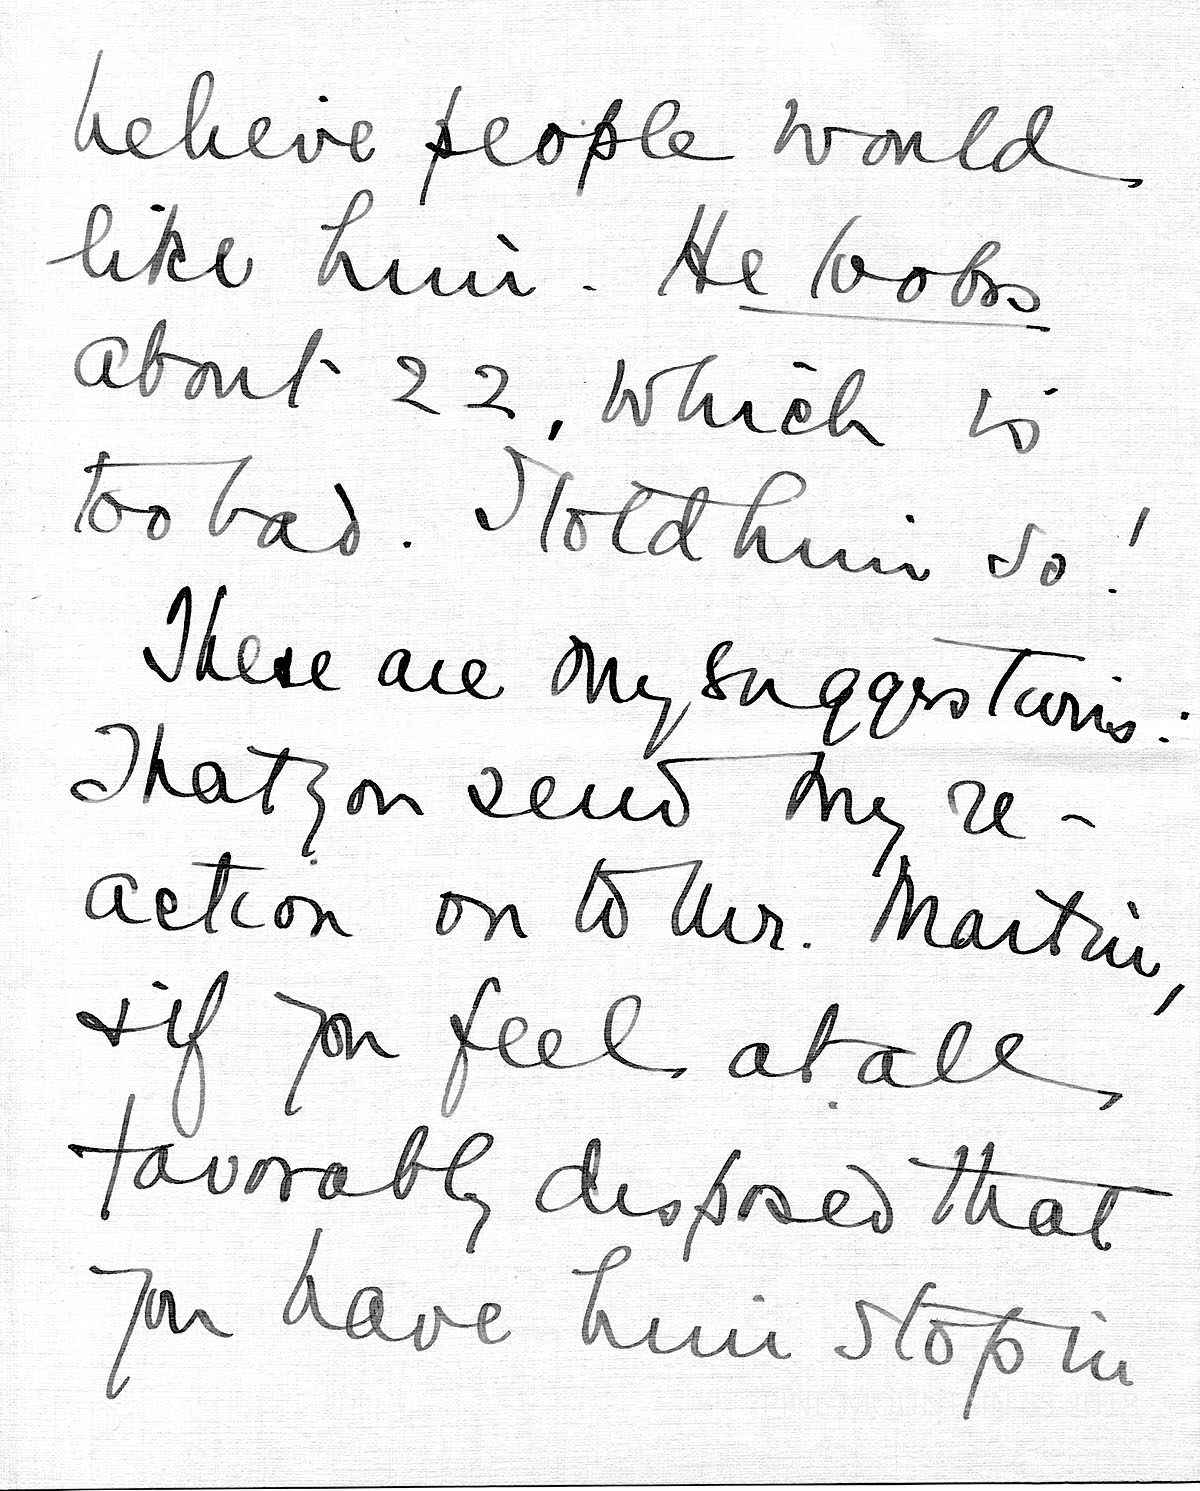 believe people would
like him. He looks
about 22, which is
too bad. I told him so!
These are my suggestions:
That you send my re-
action on to Mr. Martin,
& if you feel at all
favorably disposed that
you have him stop in